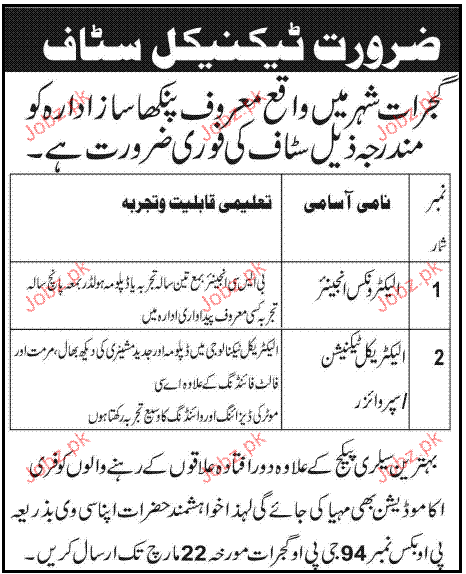 ضرورت ٹیکنیکل سٹاف
گجرات شہر میں واقع معروف پنکھا ساز ادارہ کو
مندرجہ ذیل سٹاف کی فوری ضرورت ہے۔
نمبر شمار
نامی آسامی
تعلیمی قابلیت و تجربہ
1
الیکٹرونکس انجینئر
بی ایس سی انجینئر بمع تین سالہ تجربہ یا ڈپلومہ ہولڈر بمعہ پانچ سالہ
تجربہ کسی معروف پیداواری ادارہ میں
2
الیکٹریکل ٹیکنیشن
/سپروائزر
الیکٹریکل ٹیکنالوجی میں ڈپلومہ اور جدید مشینری کی دیکھ بھال، مرمت اور
فالٹ فائنڈنگ کے علاوہ اے سی
موٹر کی ڈیزائنگ اور وائنڈنگ کا وسیع تجربہ رکھتا ہوں
بہترین سیلری پیکج کے علاوہ دور افتادہ علاقوں کے رہنے والوں کو فری
اکاموڈیشن بھی مہیا کی جائے گی لہذا خواہشمند حضرات اپنا سی وی بذریعہ
پی او بکس نمبر 94 جی پی او گجرات مورخہ 22 مارچ تک ارسال کریں۔
Jobz.pk